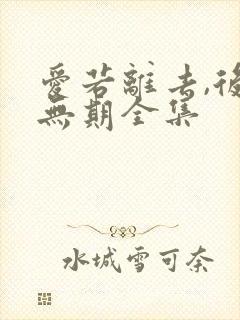 愛若離去,後
無期全集
水城雪可奈